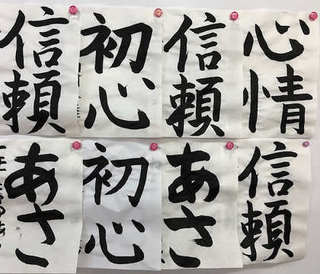 信頼
初心
信頼
心情
あさ
初心
あさ
信頼